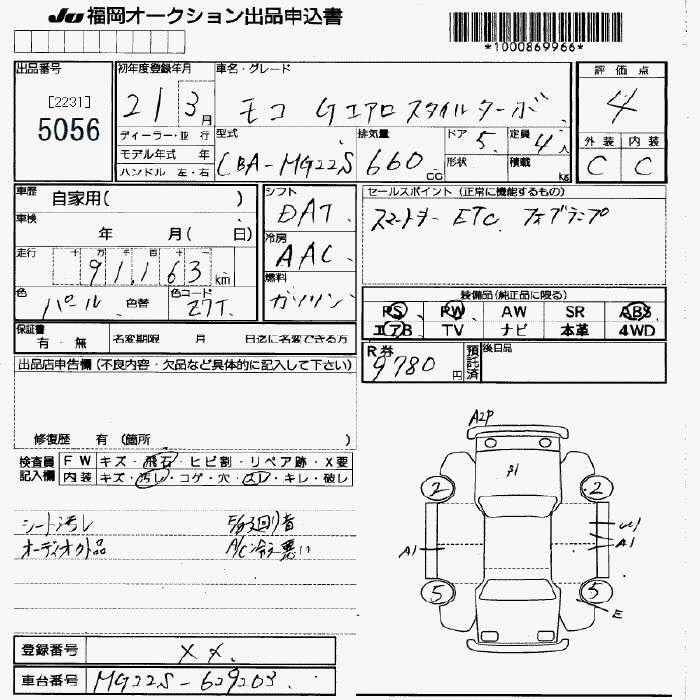 JU 福岡オークション出品申込書
*1000869966*
出品番号
[2231]
5056
初年度登録年月
21 3月
ディーラー・並 行
モデル年式 年
ハンドル 左・右
車名・グレード
モコ Gエアロスタイルターボ
型式
CBA-MG22S
排気量
660 CC
ドア
5
定員
4人
形状
積載
kg
評価点
4
外装 内装
C C
車歴
自家用( )
車検
年 月( 日)
走行
十 万 千 百 十 一
91,163 km
色
パール
色替
色コード
Z7T
シフト
DAT
冷房
AAC
燃料
ガソリン
セールスポイント (正常に機能するもの)
スマートキー ETC フォグランプ
装備品(純正品に限る)
PS PW AW SR ABS
エアB TV ナビ 本革 4WD
保証書
有・無
名変期限 月 日迄に名変できる方
R券
9780円
預託済
後日品
出品店申告欄 (不良内容・欠品など具体的に記入して下さい)
修復歴 有 (箇所 )
検査員
記入欄
FW キズ・飛石・ヒビ割・リペア跡・X要
内装 キズ・汚レ・コゲ・穴・スレ・キレ・破レ
シート汚レ
オーディオ欠品
A/C冷え悪い
A2P
2
2
A1
A1
5
5
E
登録番号
××
車台番号
MG22S-629203